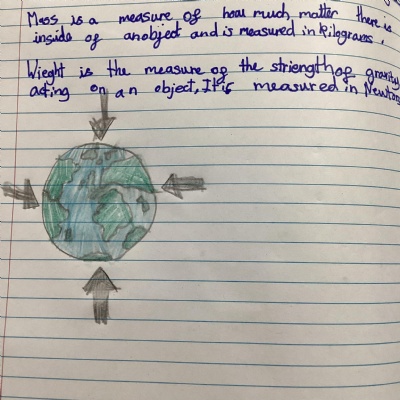 Mass is a measure of how much matter there is
inside of an object and is measured in kilograms.
Wieght is the measure of the striength of gravity
acting on an object, It is measured in Newtons